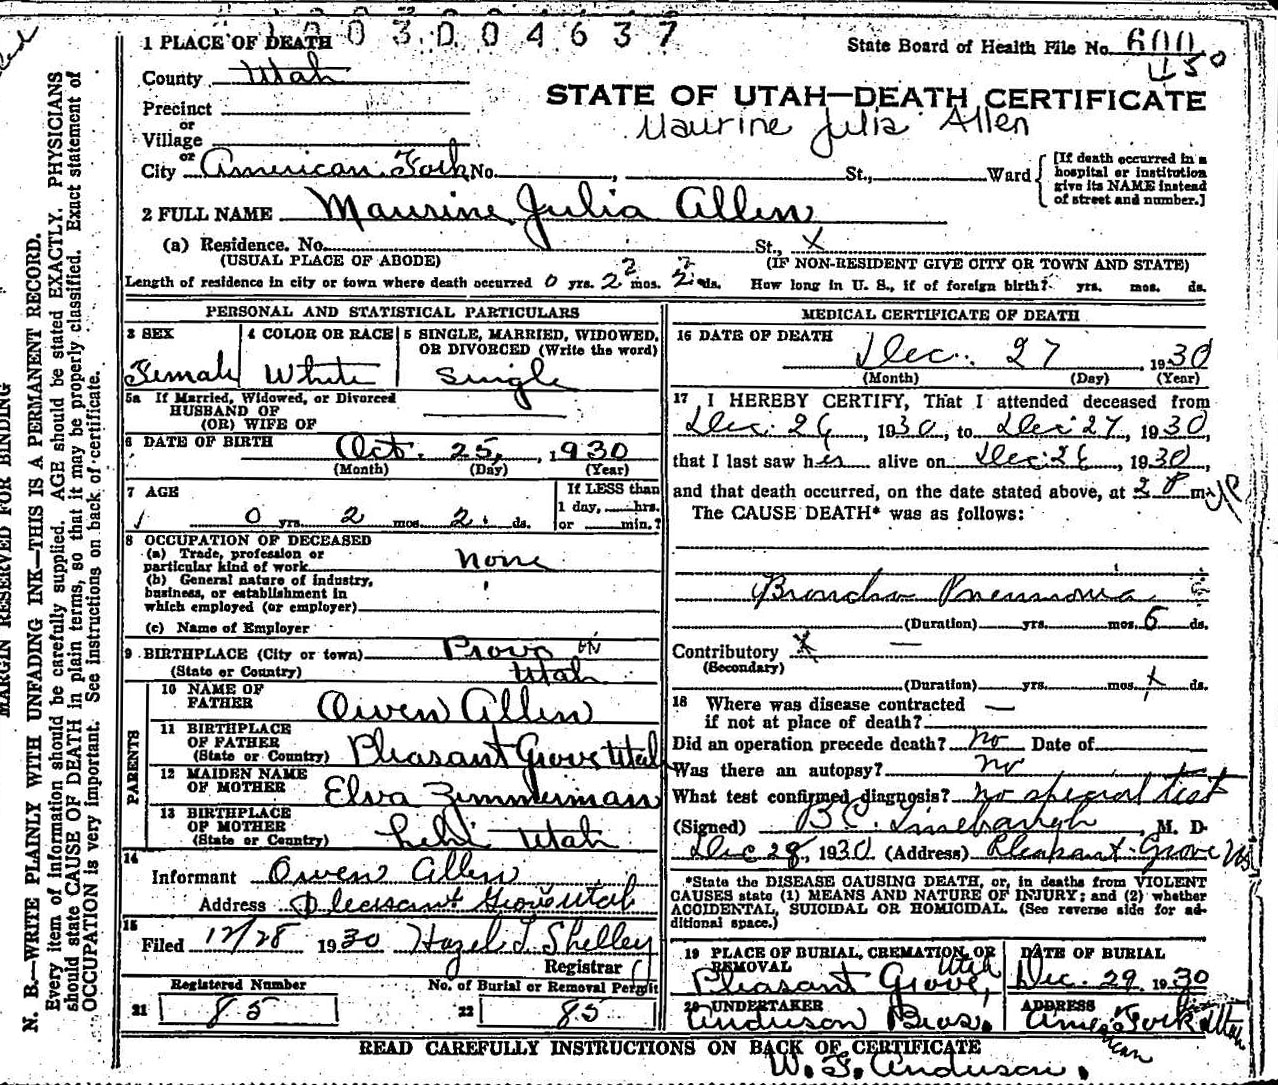 1003004637
1 PLACE OF DEATH
State Board of Health File No. 600
450
County Utah
STATE OF UTAH—DEATH CERTIFICATE
Precinct
Maurine Julia Allen
or
Village
or
City American Fork No. , St., Ward
[If death occurred in a
hospital or institution
give its NAME instead
of street and number.]
2 FULL NAME Maurine Julia Allen
(a) Residence. No. St., X
(USUAL PLACE OF ABODE) (IF NON-RESIDENT GIVE CITY OR TOWN AND STATE)
Length of residence in city or town where death occurred 0 yrs. 2 mos. 2 ds. How long in U. S., if of foreign birth? yrs. mos. ds.
PERSONAL AND STATISTICAL PARTICULARS
3 SEX 4 COLOR OR RACE 5 SINGLE, MARRIED, WIDOWED,
OR DIVORCED (Write the word)
Female White Single
5a If Married, Widowed, or Divorced
HUSBAND OF
(OR) WIFE OF
6 DATE OF BIRTH Oct. 25, 1930
(Month) (Day) (Year)
7 AGE
If LESS than
1 day, hrs.
0 yrs. 2 mos. 2 ds. or min.?
8 OCCUPATION OF DECEASED
(a) Trade, profession or
particular kind of work None
(b) General nature of industry,
business, or establishment in
which employed (or employer)
(c) Name of Employer
9 BIRTHPLACE (City or town) Provo
(State or Country) Utah
PARENTS
10 NAME OF
FATHER Owen Allen
11 BIRTHPLACE
OF FATHER
(State or Country) Pleasant Grove Utah
12 MAIDEN NAME
OF MOTHER Elva Zimmerman
13 BIRTHPLACE
OF MOTHER
(State or Country) Lehi Utah
14
Informant Owen Allen
Address Pleasant Grove Utah
15
Filed 12/28 1930 Hazel T. Shelley
Registrar
Registered Number No. of Burial or Removal Permit
21 85 22 85
MEDICAL CERTIFICATE OF DEATH
16 DATE OF DEATH
Dec. 27, 1930
(Month) (Day) (Year)
17 I HEREBY CERTIFY, That I attended deceased from
Dec. 26, 1930, to Dec. 27, 1930,
that I last saw her alive on Dec. 26, 1930,
and that death occurred, on the date stated above, at 2 P m.
The CAUSE DEATH* was as follows:
Broncho Pneumonia
(Duration) yrs. mos. 6 ds.
Contributory X —
(Secondary)
(Duration) yrs. mos. ds.
18 Where was disease contracted
if not at place of death? —
Did an operation precede death? No Date of
Was there an autopsy? no
What test confirmed diagnosis? No special test
(Signed) B C. Linebaugh M. D.
Dec 28, 1930 (Address) Pleasant Grove
*State the DISEASE CAUSING DEATH, or, in deaths from VIOLENT
CAUSES state (1) MEANS AND NATURE OF INJURY; and (2) whether
ACCIDENTAL, SUICIDAL OR HOMICIDAL. (See reverse side for ad-
ditional space.)
19 PLACE OF BURIAL, CREMATION, OR
REMOVAL DATE OF BURIAL
Pleasant Grove, Utah Dec. 29, 1930
20 UNDERTAKER ADDRESS
Anderson Bros. American Fork Utah
READ CAREFULLY INSTRUCTIONS ON BACK OF CERTIFICATE
W. F. Anderson.
MARGIN RESERVED FOR BINDING
N. B.—WRITE PLAINLY WITH UNFADING INK—THIS IS A PERMANENT RECORD.
Every item of information should be carefully supplied. AGE should be stated EXACTLY. PHYSICIANS
should state CAUSE OF DEATH in plain terms, so that it may be properly classified. Exact statement of
OCCUPATION is very important. See instructions on back of certificate.